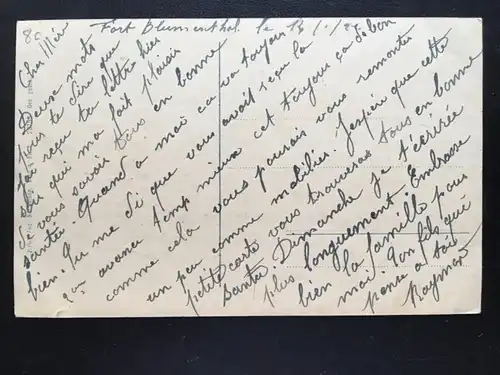 Fort Blumenthal le 13
Cher Mér
Deuse mots
pous te dire que
J'ai reçu ta lettre hier
Se qui ma fait plaisir
de vous savoir tous en bonne
santée. Quand a moi ca va toujours
bien. Tu me di que vous avait reçu la
avance temp mieux cet toujours ça de bon
comme cela vous pourais vous remonter
un peu comme mobilier. J'espéri que cette
petite carte vous trouveras tous en bonne
Santée Dimanche je t'écrirée
plus longuement Embrasse
bien la famille pous
moi. Ton fils qui
pense a toi
Raymond